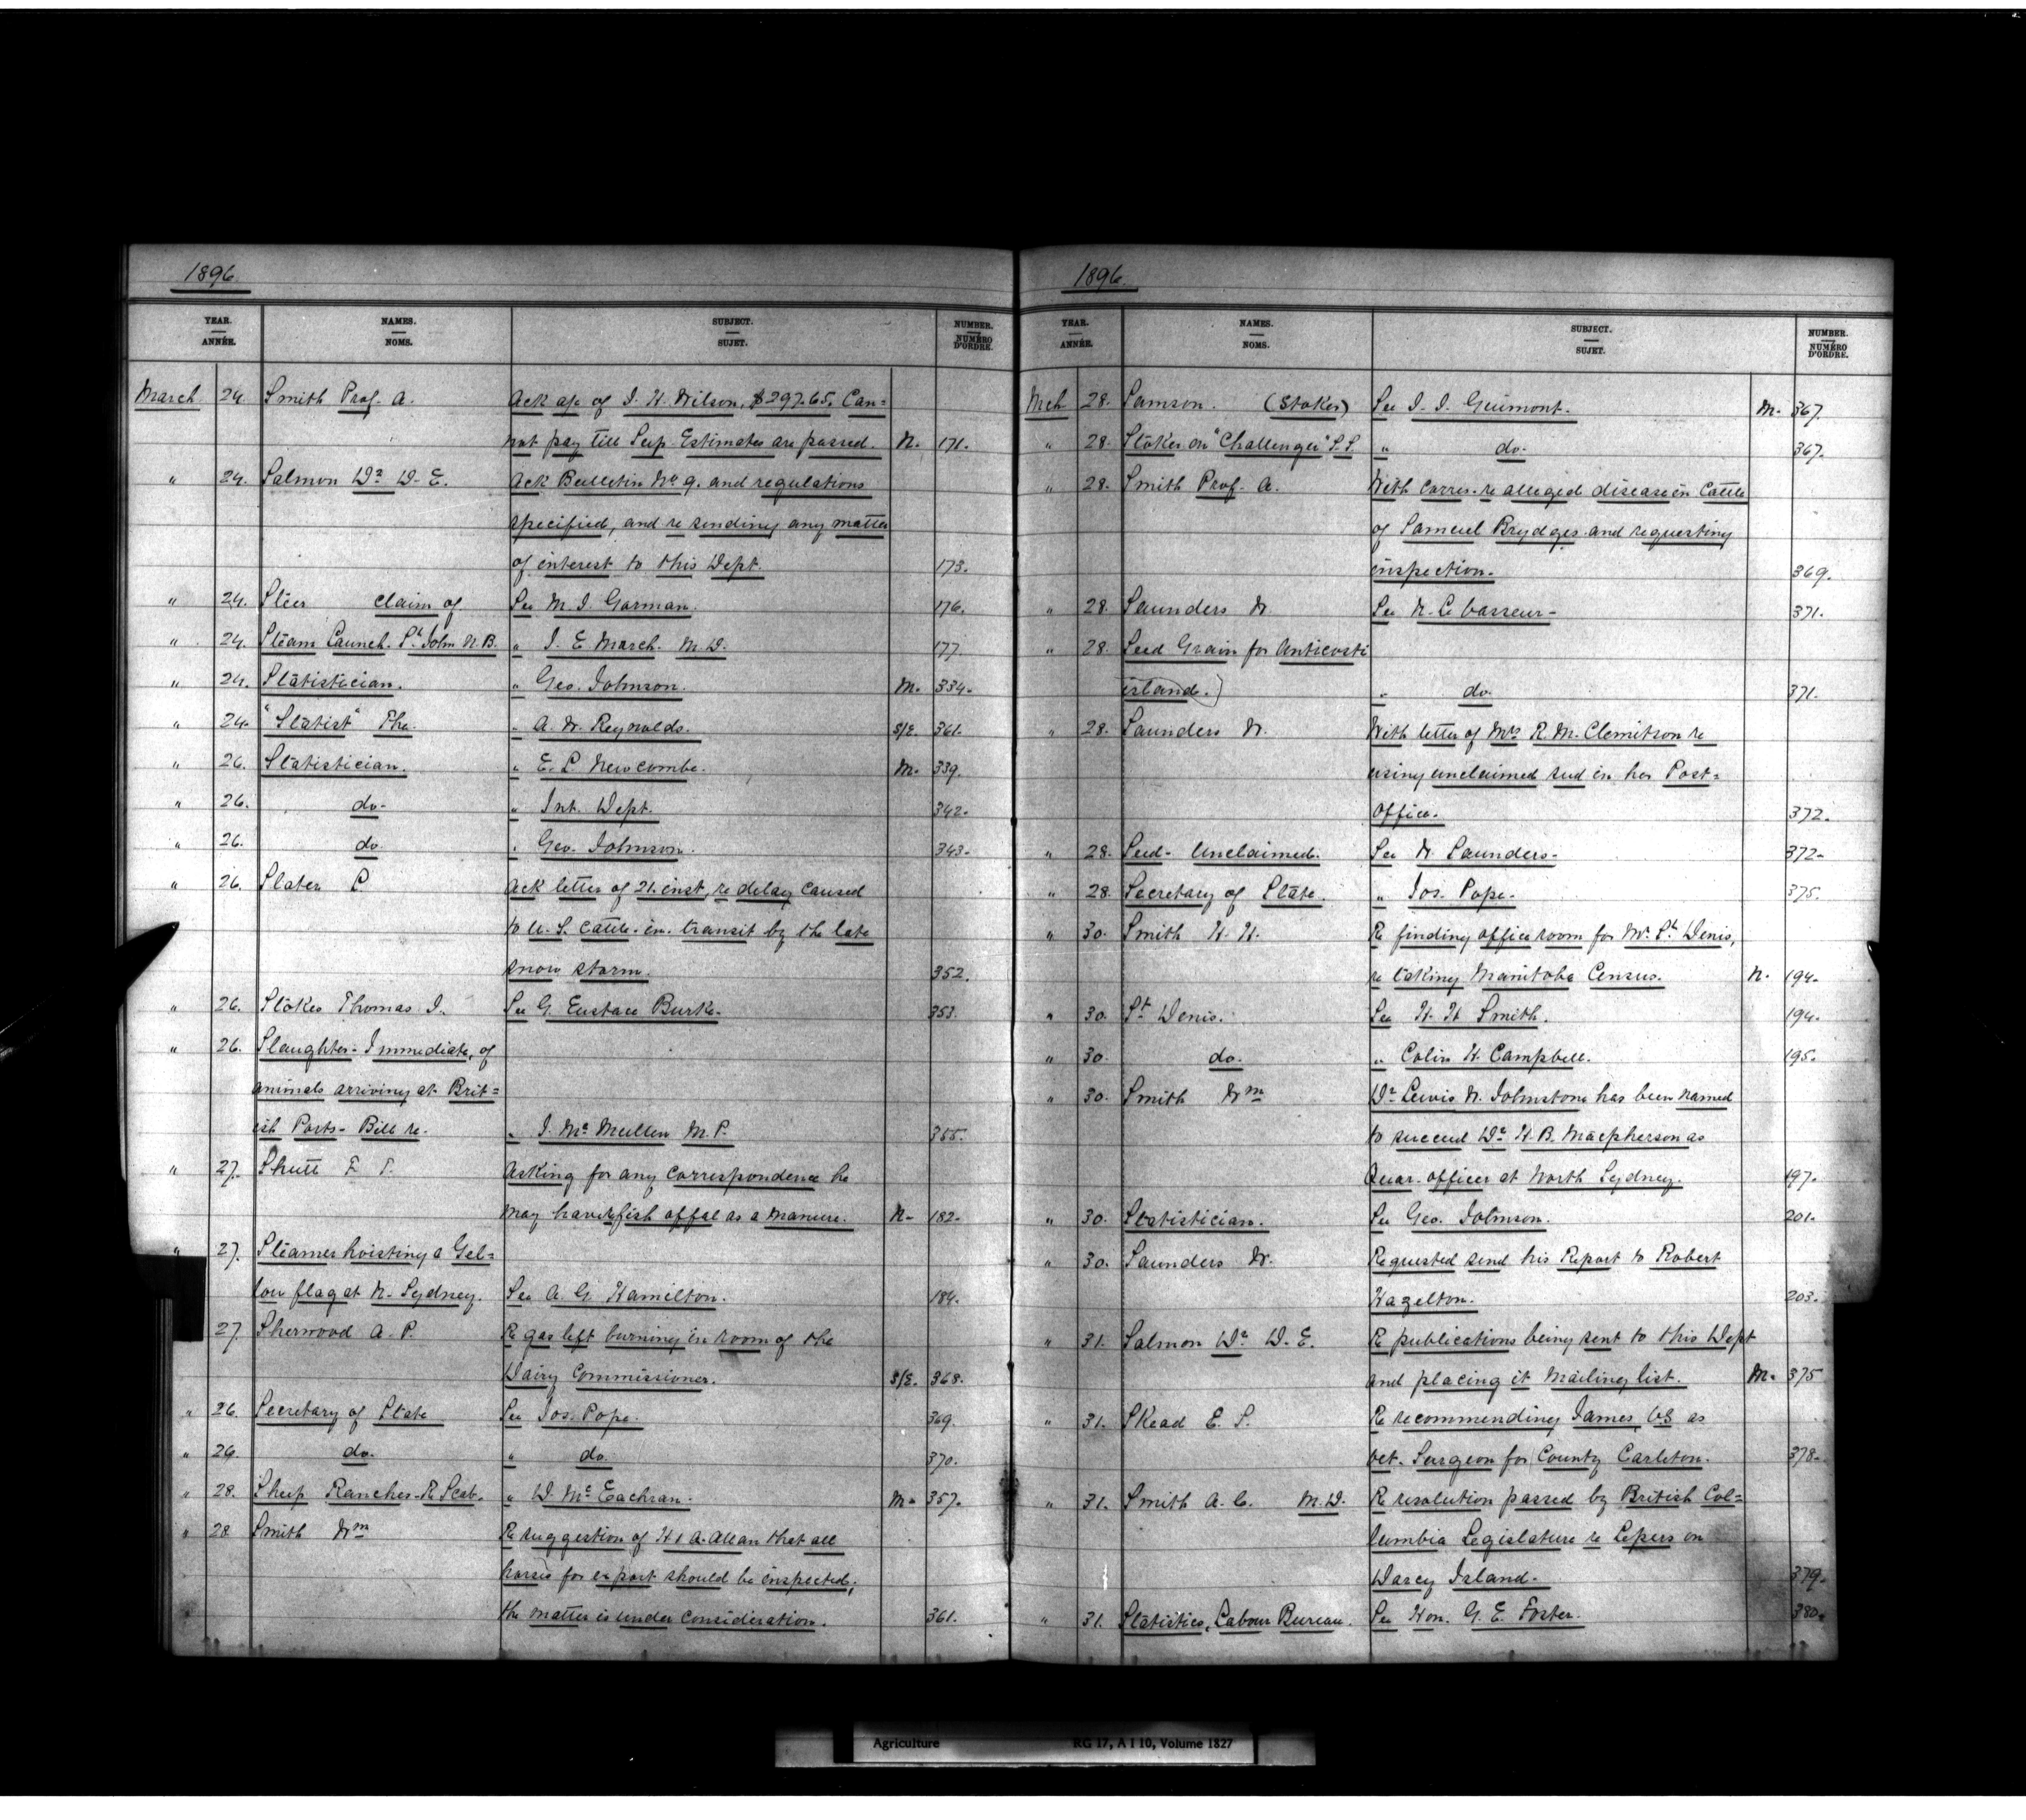 1896.
YEAR. NAMES. SUBJECT. NUMBER.
ANNÉE. NOMS. SUJET. NUMÉRO D'ORDRE.
March 24. Smith Prof. A. Ack a/c of J. H. Wilson, $297.65. Can=
not pay till Sup. Estimates are passed. N. 171.
" 24. Salmon Dr D. E. Ack Bulletin No 9. and regulations
specified, and re sending any matter
of interest to this Dept. 173.
" 24. Steer claim of See M. J. Gorman. 176.
" 24. Steam Launch. St. John N.B. " J. E. March. M.D. 177.
" 24. Statistician. " Geo. Johnson. M. 334.
" 24. "Statist" The. " A. W. Reynolds. S/E. 361.
" 26. Statistician. " E. L. Newcombe. M. 339.
" 26. do. " Int. Dept. 342.
" 26. do. " Geo. Johnson. 343.
" 26. Slater P Ack letter of 21. inst, re delay caused
to U. S. Cattle. in. transit by the late
snow storm. 352.
" 26. Stokes Thomas J. See G. Eustace Burke. 353.
" 26. Slaughter - Immediate, of
animals arriving at Brit=
ish Ports - Bill re. " J. Mc Mullen M.P. 355.
" 27. Shutt F. T. Asking for any correspondence he
may have re fish offal as a manure. N. 182.
" 27. Steamer hoisting a Yel=
low flag at N. Sydney. See A. G. Hamilton. 184.
27. Sherwood A. P. Re gas left burning in room of the
Dairy Commissioner. S/E. 368.
" 26. Secretary of State See Jos. Pope. 369.
" 26. do. " do. 370.
" 28. Sheep Ranches - Re Scab. " D. Mc Eachran. M. 357.
" 28. Smith Wm Re suggestion of H & A. Allan that all
horses for export should be inspected;
the matter is under consideration. 361.
1896.
YEAR. NAMES. SUBJECT. NUMBER.
ANNÉE. NOMS. SUJET. NUMÉRO D'ORDRE.
Mch 28. Samson. (Stoker) See J. J. Guimont. M. 367.
" 28. Stoker on "Challenger" S.S. " do. 367.
" 28. Smith Prof. A. With corres. re alleged disease in Cattle
of Samuel Brydges. and requesting
inspection. 369.
" 28. Saunders W. See N. Le Vasseur - 371.
" 28. Seed Grain for Anticosti
island.) " do. 371.
" 28. Saunders W. With letter of Mrs R. M. Clemitson re
using unclaimed seed in her Post=
office. 372.
" 28. Seed - Unclaimed. See W. Saunders - 372.
" 28. Secretary of State. " Jos. Pope. 375.
" 30. Smith H. H. Re finding office room for Mr. St Denis,
re taking Manitoba Census. N. 194.
" 30. St Denis. See H. H Smith. 194.
" 30. do. " Colin H. Campbell. 195.
" 30. Smith Wm Dr Lewis W. Johnstone has been named
to succeed Dr H. B. Macpherson as
Quar. officer at North Sydney. 197.
" 30. Statistician. See Geo. Johnson. 201.
" 30. Saunders W. Requested send his Report to Robert
Hazelton. 203.
" 31. Salmon Dr D. E. Re publications being sent to this Dept
and placing it Mailing list. M. 375
" 31. Skead E. S. Re recommending James, V.S. as
Vet. Surgeon for County Carleton. 378.
" 31. Smith A. C. M.D. Re resolution passed by British Col=
lumbia Legislature re Lepers on
Darcy Island. 379.
" 31. Statistics, Labour Bureau. See Hon. G. E. Foster. 380.
Agriculture RG 17, A I 10, Volume 1827